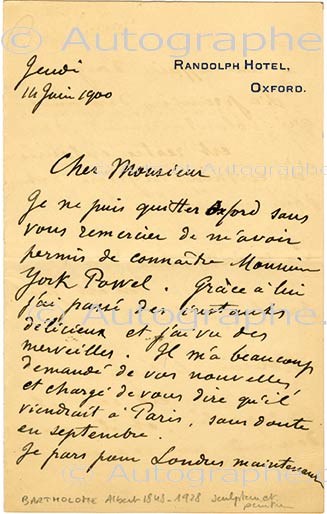 © Autographe
RANDOLPH HOTEL,
OXFORD.
Jeudi
14 Juin 1900
Cher Monsieur
Je ne puis quitter Oxford sans
vous remercier de m'avoir
permis de connaître Monsieur
York Powel. Grâce à lui
j'ai passé des instants
délicieux et j'ai vu des
merveilles. Il m'a beaucoup
demandé de vos nouvelles
et chargé de vous dire qu'il
viendrait à Paris, sans doute
en septembre.
Je pars pour Londres maintenant
BARTHOLOME Albert 1848-1928 sculpteur et
peintre